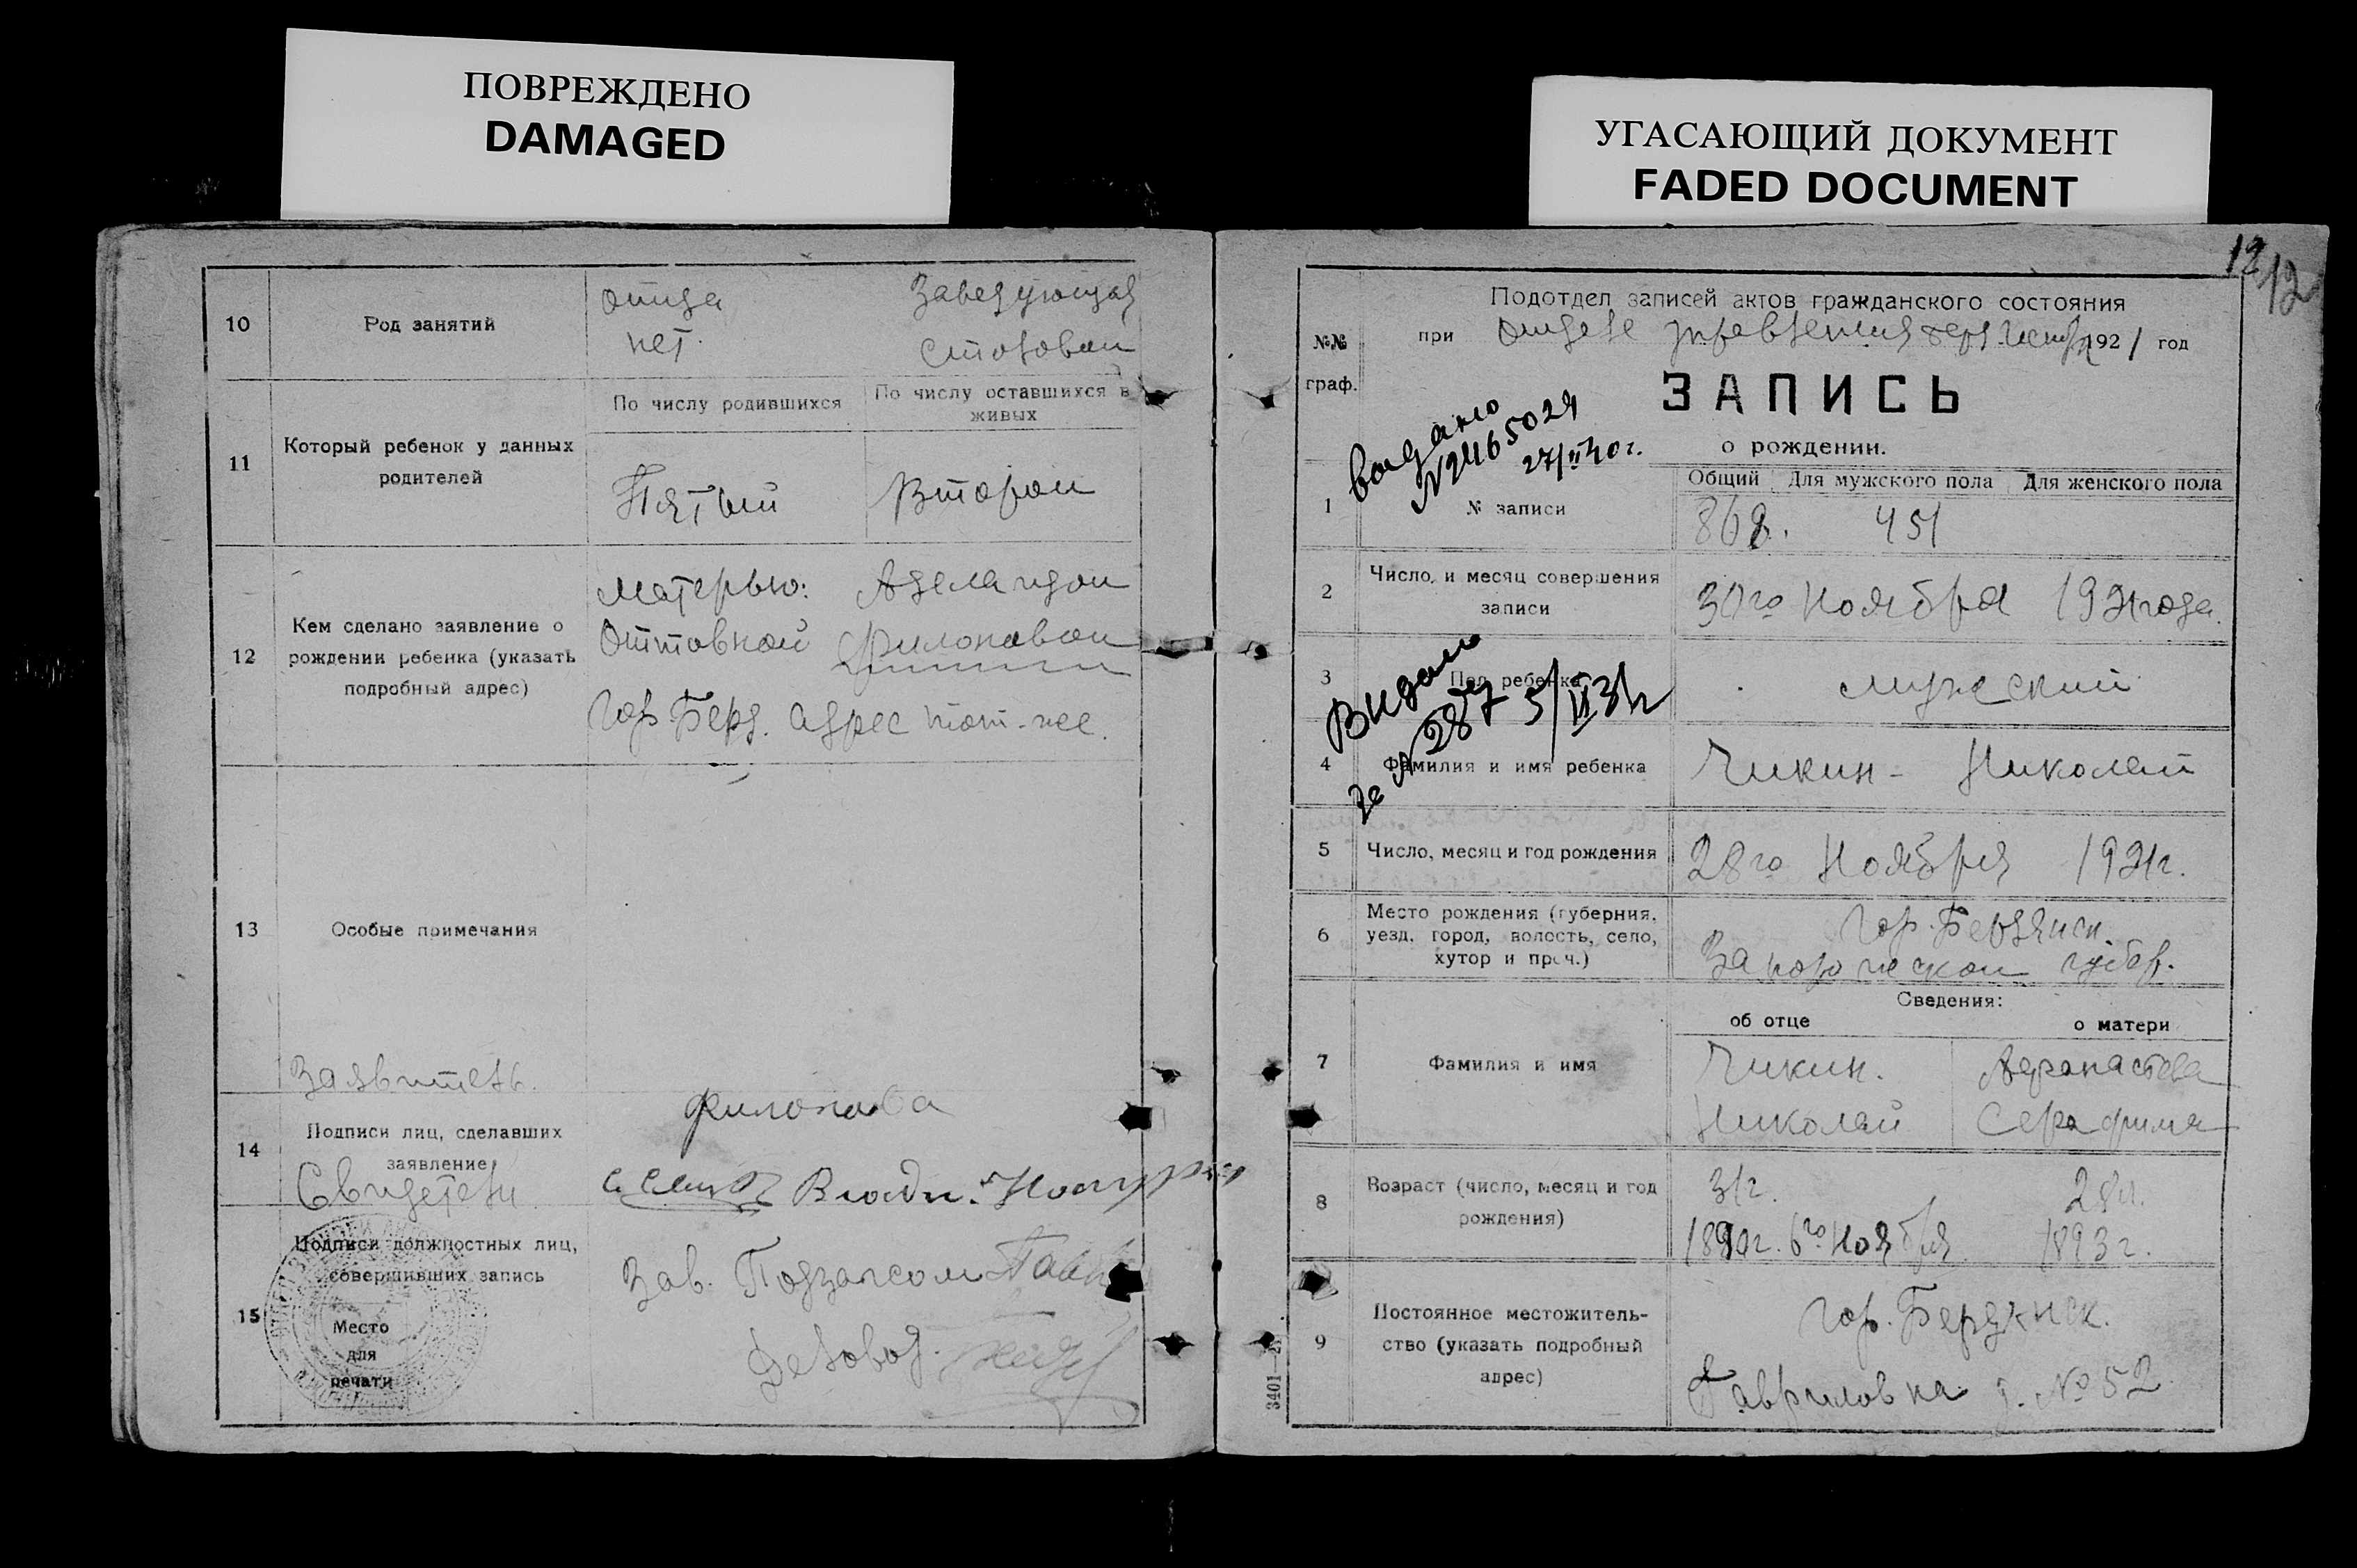 ПОВРЕЖДЕНО
DAMAGED
10
Род занятий
отца
нет.
Заведующая
столовой
11
Который ребенок у данных
родителей
По числу родившихся
По числу оставшихся в
живых
Пятый
Второй
12
Кем сделано заявление о
рождении ребенка (указать
подробный адрес)
Матерью: Аделаидой
Оттовной Филоновой
Гор. Берд. адрес тот-же.
13
Особые примечания
Заявитель.
14
Подписи лиц, сделавших
заявление
Свидетели
Филонова
15
Подписи должностных лиц,
совершивших запись
Место
для
печати
Зав. Подзагсом
Деловод.
УГАСАЮЩИЙ ДОКУМЕНТ
FADED DOCUMENT
12
12
№№
граф.
Подотдел записей актов гражданского состояния
при Отделе Управления Берд. 1921 год
ЗАПИСЬ
о рождении.
выдано
27/II 40 г.
1
№ записи
Общий
Для мужского пола
Для женского пола
868.
451
2
Число, и месяц совершения
записи
30го Ноября 1921 года.
3
Пол ребенка
мужской
Видано
4
Фамилия и имя ребенка
Чикин - Николай
5
Число, месяц и год рождения
28го Ноября 1921г.
6
Место рождения (губерния,
уезд, город, волость, село,
хутор и проч.)
Гор. Бердянск.
Запорожской губер.
7
Фамилия и имя
Сведения:
об отце
о матери
Чикин.
Николай
Афанасьева
Серафима
8
Возраст (число, месяц и год
рождения)
31г.
1890г. 6го Ноября
28л.
1893г.
9
Постоянное местожитель-
ство (указать подробный
адрес)
Гор. Бердянск.
Гавриловка д. № 52
3401—21